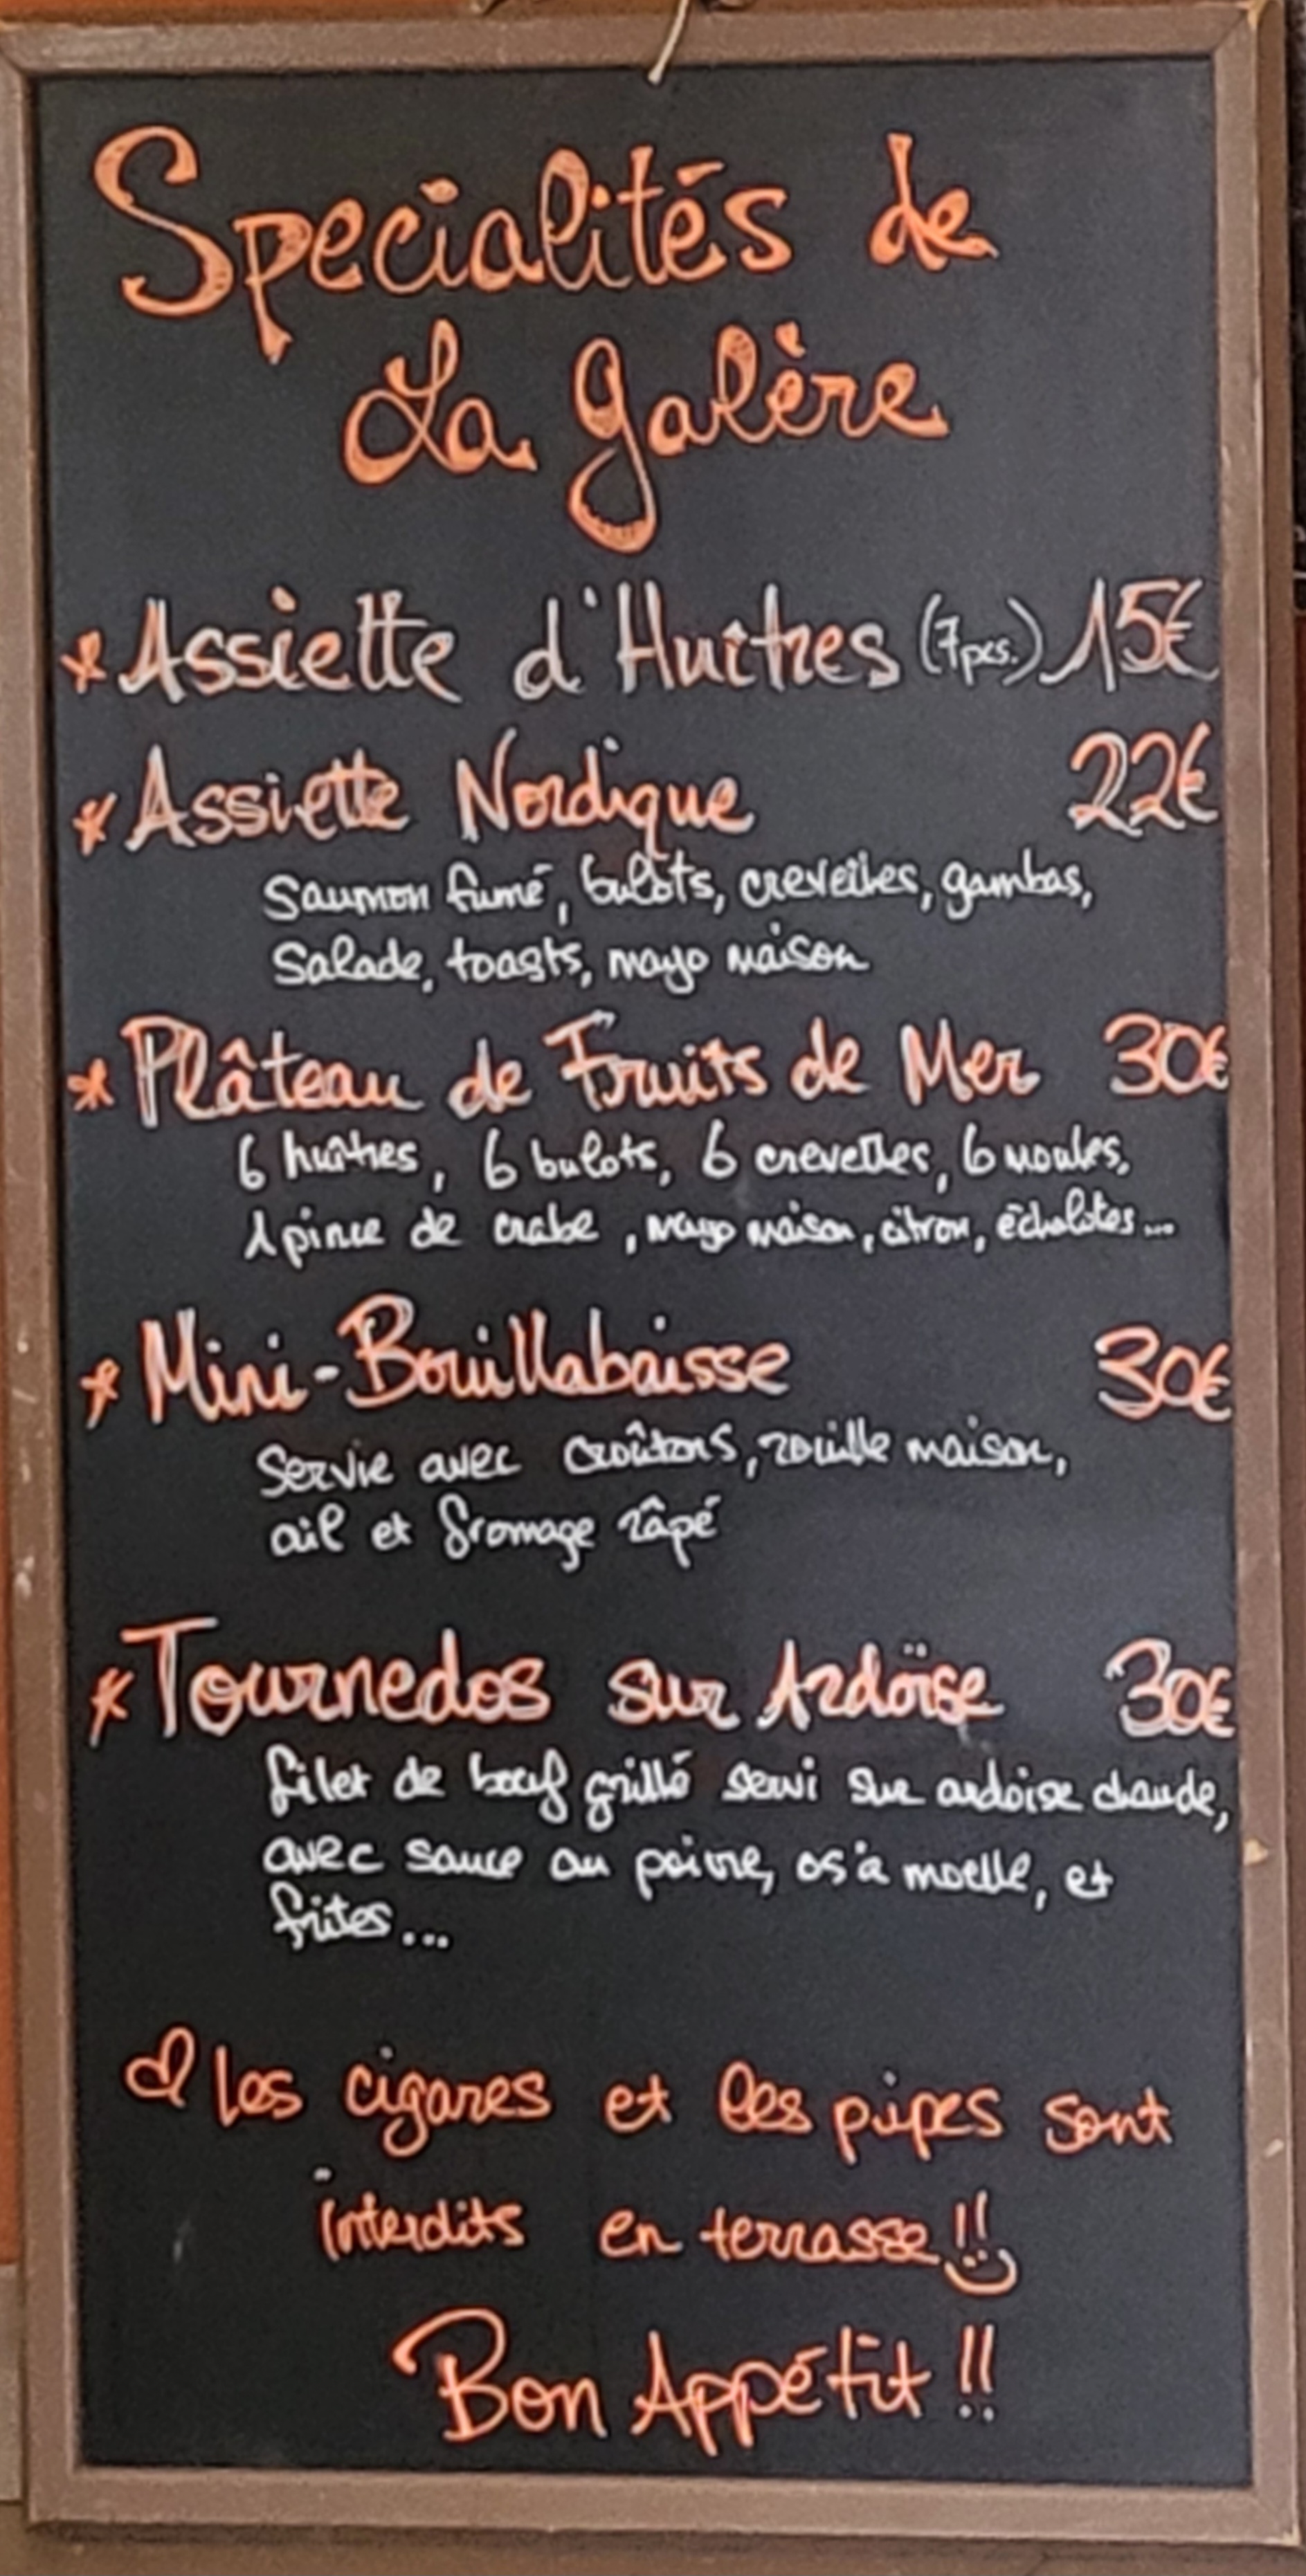 Specialités de
La galère
* Assiette d'Huîtres (7pcs.) 15€
* Assiette Nordique 22€
Saumon fumé, bulots, crevettes, gambas,
Salade, toasts, mayo maison
* Plâteau de Fruits de Mer 30€
6 huîtres, 6 bulots, 6 crevettes, 6 moules,
1 pince de crabe, mayo maison, citron, échalotes...
* Mini-Bouillabaisse 30€
Servie avec croûtons, rouille maison,
ail et fromage râpé
* Tournedos sur Ardoïse 30€
filet de bœuf grillé servi sur ardoise chaude,
avec sauce au poivre, os à moelle, et
frites...
Les cigares et les pipes sont
interdits en terrasse!!
Bon Appétit !!